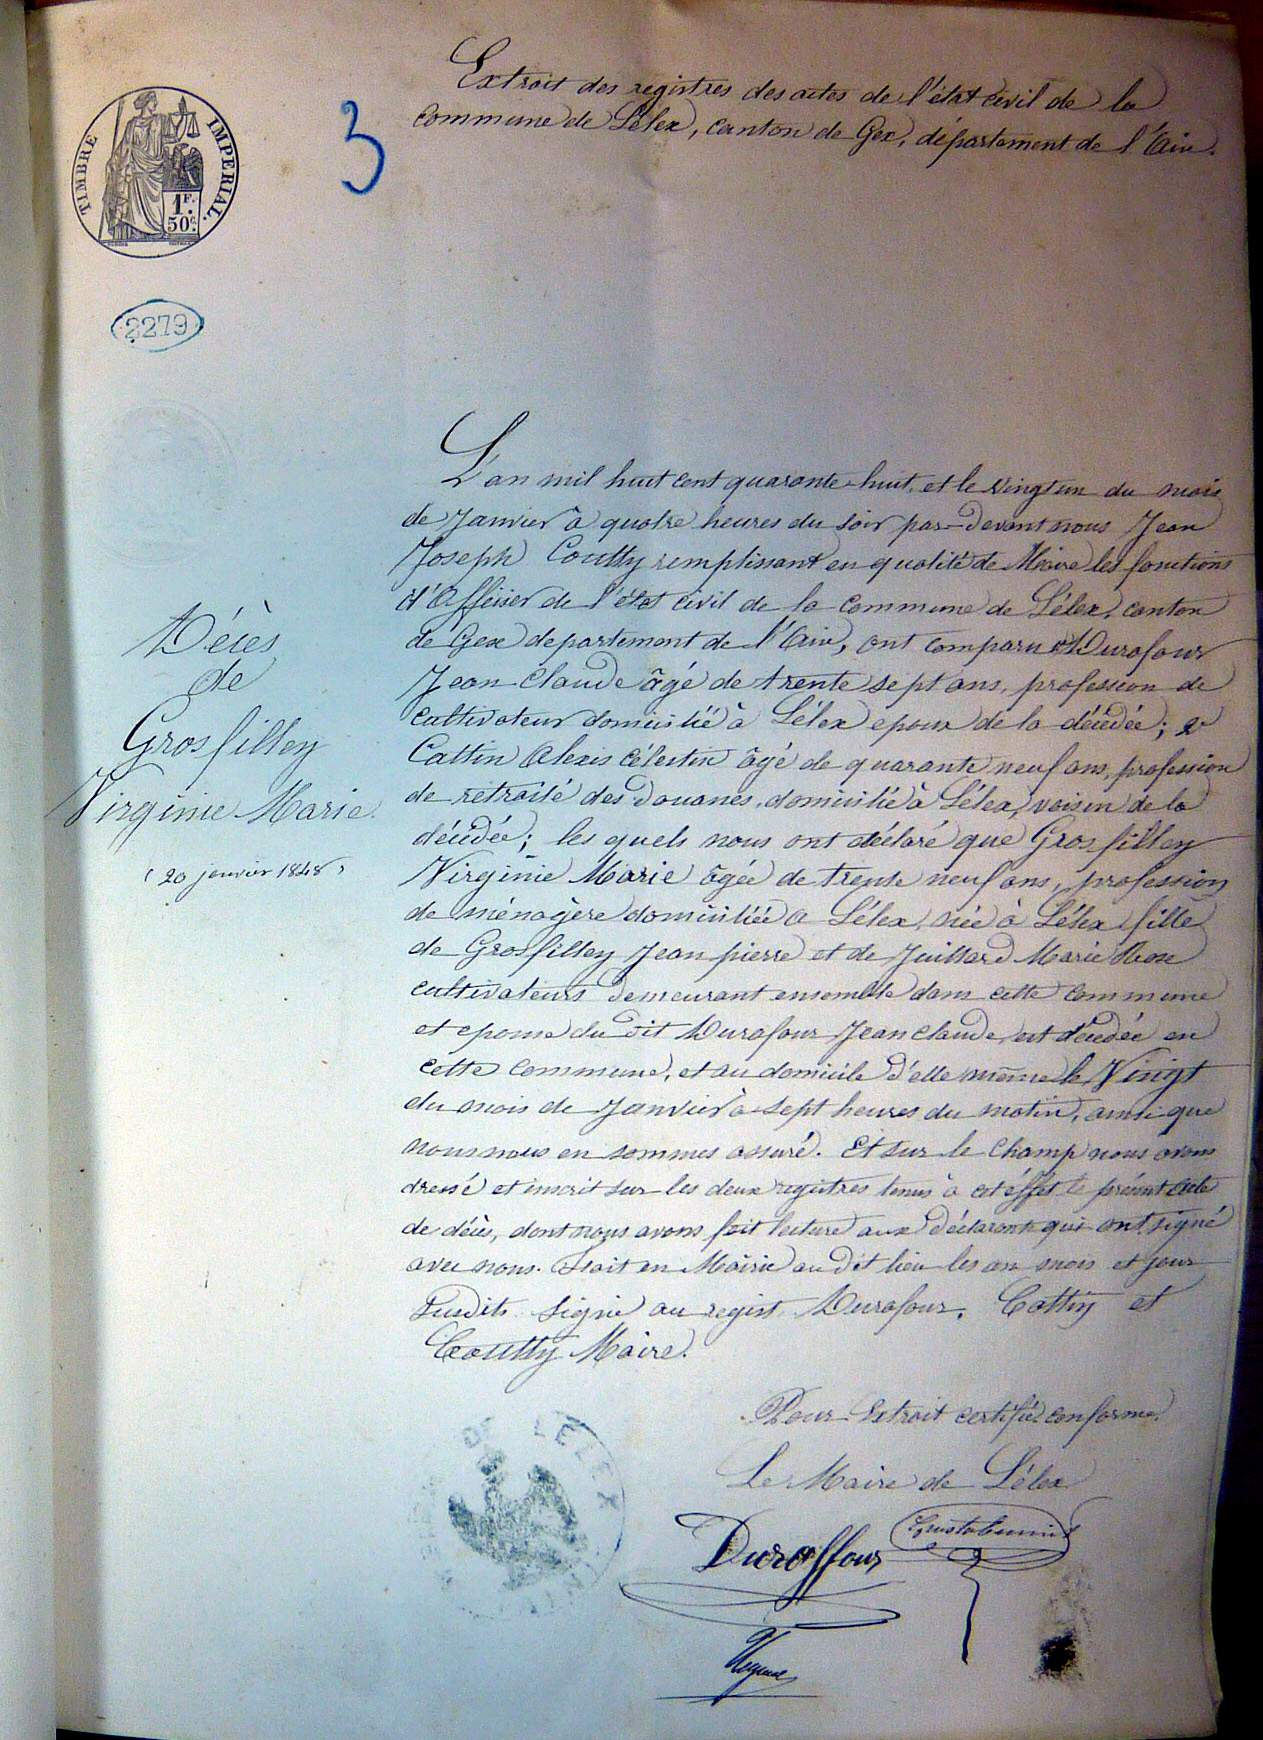 Extrait des registres des actes de l'état civil de la
commune de Lélex, canton de Gex, département de l'Ain.
TIMBRE IMPERIAL.
1F.
50c.
3
2279
L'an mil huit cent quarante-huit, et le vingt un du mois
de Janvier à quatre heures du soir par-devant nous Jean
Joseph Coutty remplissant en qualité de Maire les fonctions
d'officier de l'état civil de la commune de Lélex, canton
de Gex departement de l'Ain, ont comparu Durafour
Jean Claude âgé de trente sept ans, profession de
cultivateur domicilié à Lélex epoux de la décédée;
Cattin Alexis Célestin âgé de quarante neuf ans, profession
de retraité des Douanes, domicilié à Lélex, voisin de la
décédée; les quels nous ont déclaré que Grosfilley
Virginie Marie âgée de trente neuf ans, profession
de ménagère domiciliée à Lélex, née à Lélex fille
de Grosfilley Jean pierre et de Juillard Marie Rose
cultivateurs demeurant ensemble dans cette commune
et epouse du dit Durafour Jean Claude, est décédée en
cette commune, et au domicile d'elle même le Vingt
du mois de Janvier à sept heures du matin, ainsi que
nous nous en sommes assuré. Et sur le champ nous avons
dressé et inscrit sur les deux registres tenus à cet éffet le présent acte
de décès, dont nous avons fait lecture aux déclarants qui ont signé
avec nous. Fait en Mairie au dit lieu les an mois et jour
susdits. Signé au regist. Durafour, Cattin et
Coutty Maire.
Décès
de
Grosfilley
Virginie Marie.
(20 janvier 1848)
Pour Extrait certifié conforme.
Le Maire de Lélex
LELEX
Duraffour